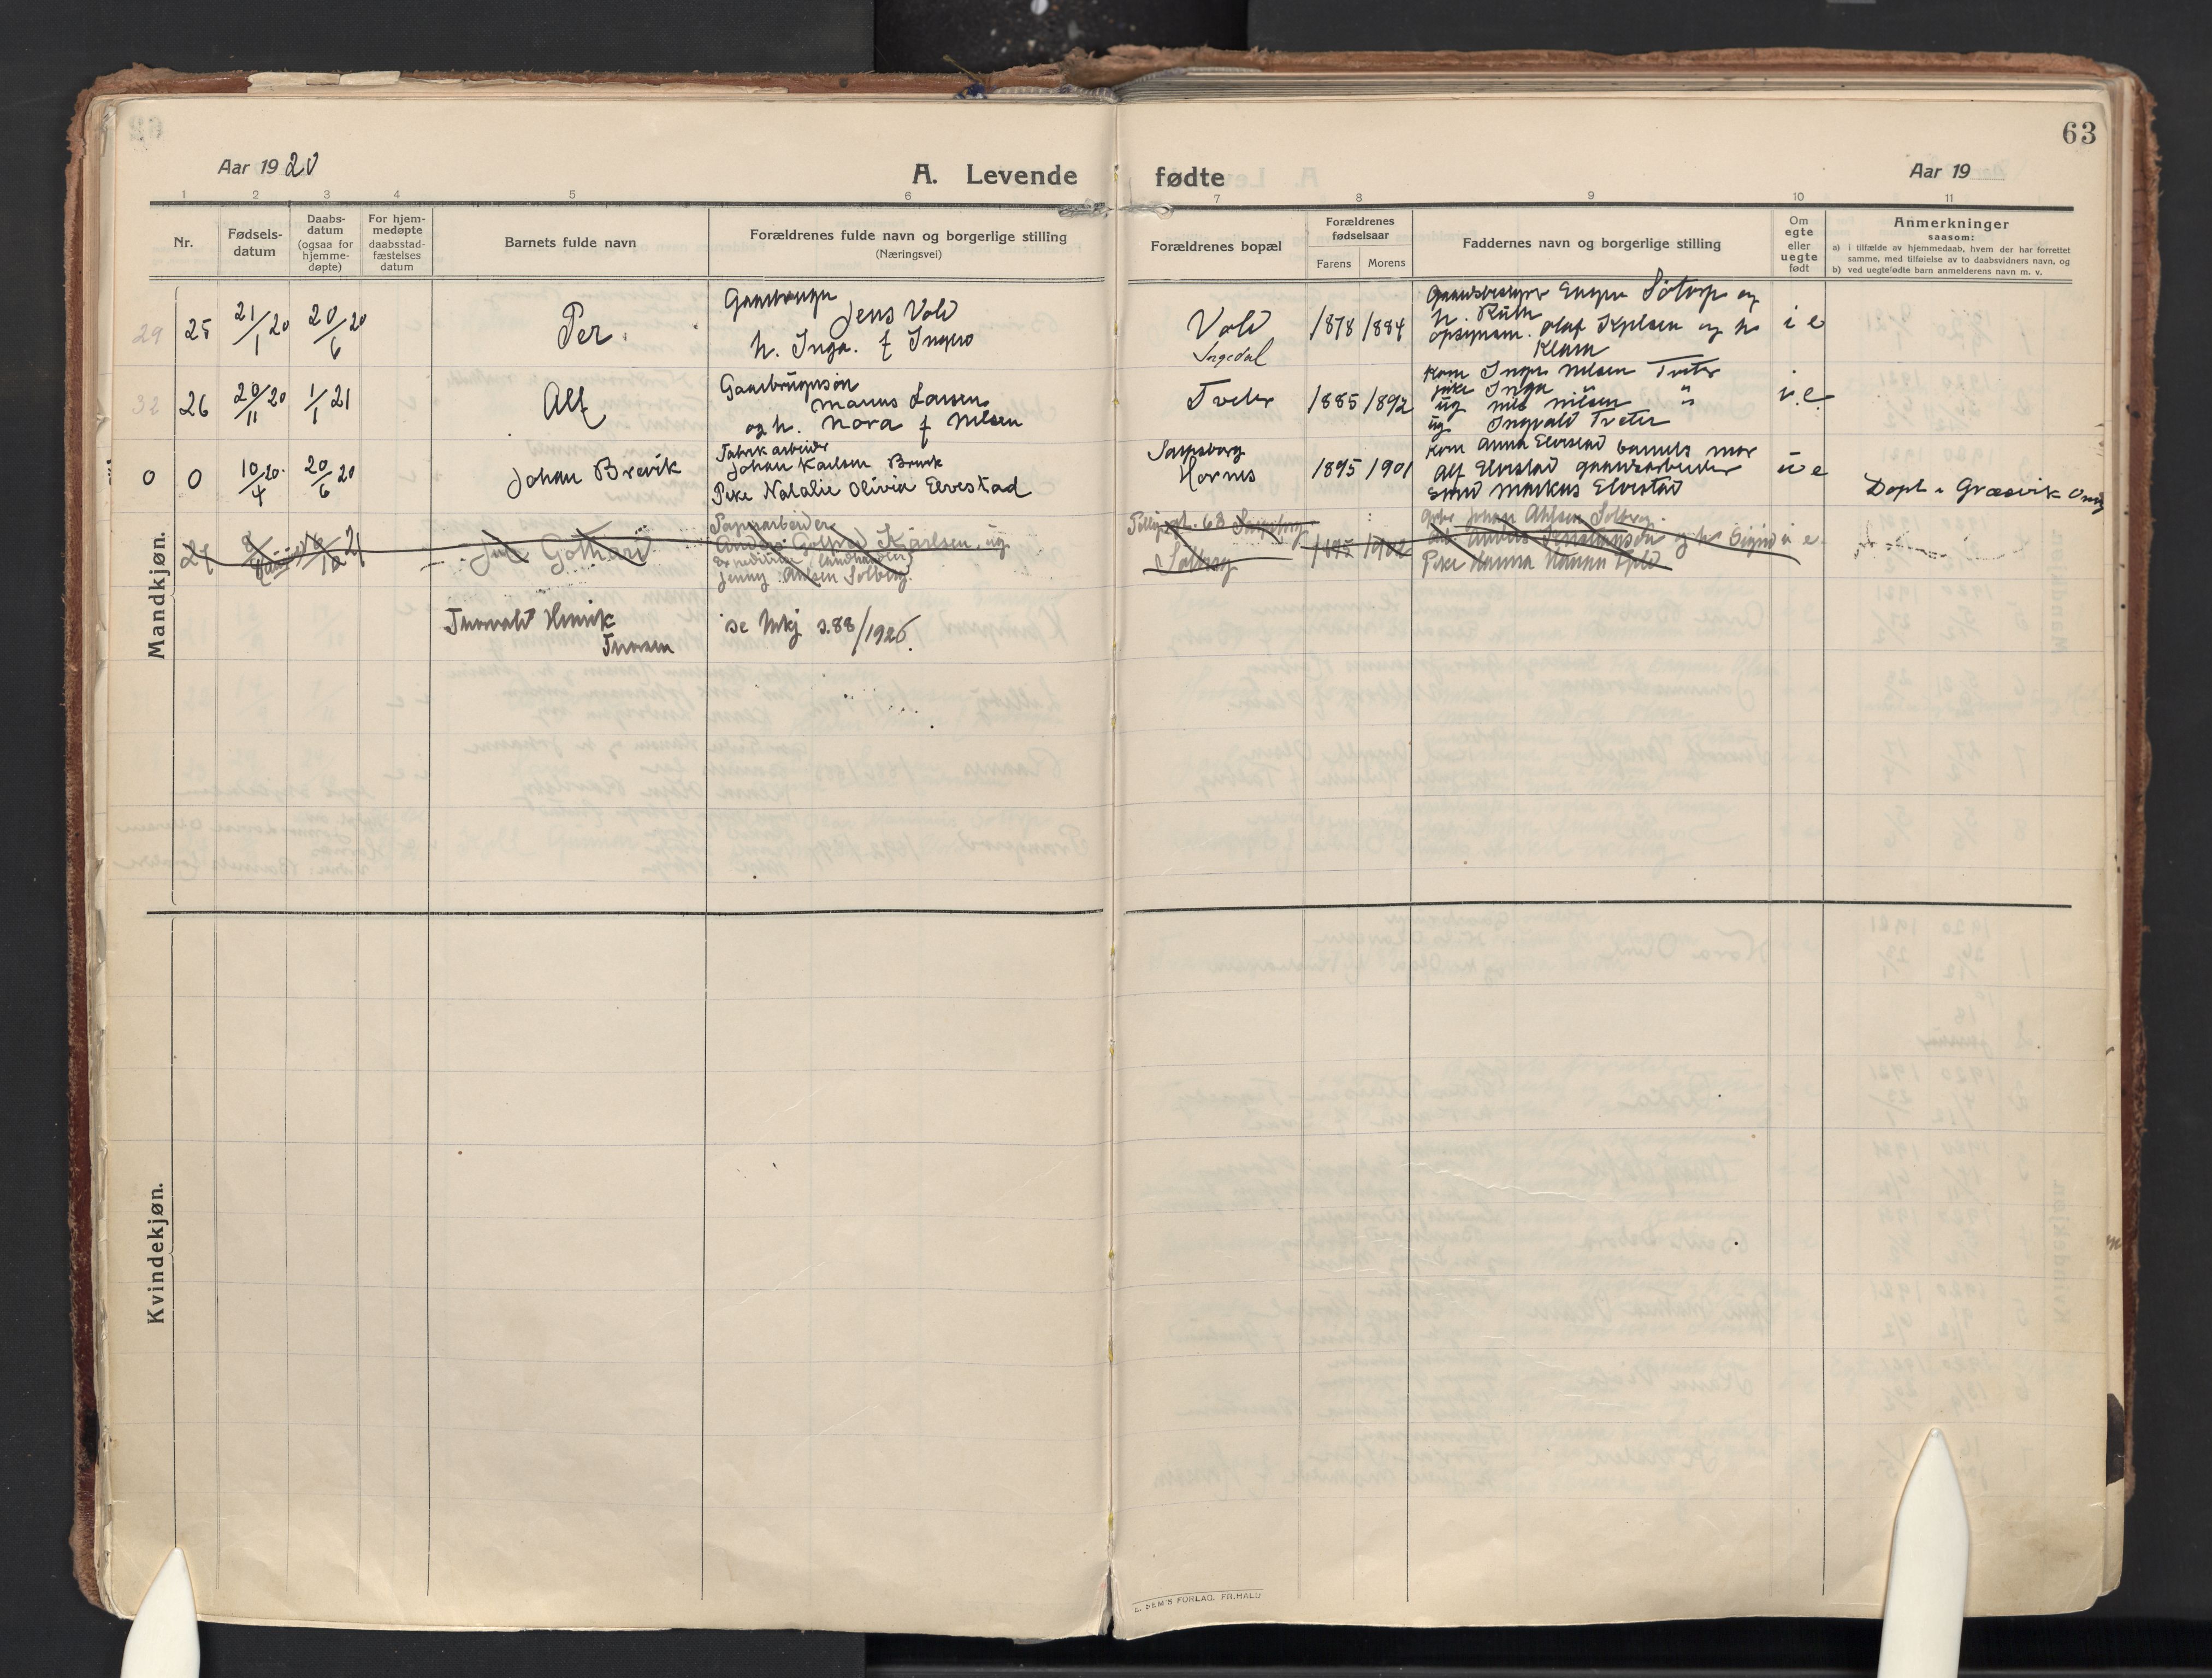 63
Aar 1920
A. Levende fødte
Aar 19
1 2 3 4 5 6 7 8 9 10 11
Nr.
Fødsels-
datum
Daabs-
datum
(ogsaa for
hjemme-
døpte)
For hjem-
medøpte
daabsstad-
fæstelses
datum
Barnets fulde navn
Forældrenes fulde navn og borgerlige stilling
(Næringsvei)
Forældrenes bopæl
Forældrenes
fødselsaar
Farens Morens
Faddernes navn og borgerlige stilling
Om
egte
eller
uegte
født
Anmerkninger
saasom:
a) i tilfælde av hjemmedaab, hvem der har forrettet
samme, med tilføielse av to daabsvidners navn, og
b) ved uegtefødte barn anmelderens navn m. v.
Mandkjøn.
29 25 21/1 20 20/6 20
Per
Gaardbruger
Jens Vold
h. Inga. f Ingero
Vold
Ingedal
1878 1884
Søtorp og
h. Ruth
Olaf og h
Klara
i e
32 26 20/11 20 1/1 21
Alf
Gaardbrugersøn
Marius Larsen
og h. Nora f Nilsen
Tveter
1885 1892
Kone Nilsen Tveter
pike Inga "
ug Nils Nilsen "
ug. Ingvald Tveter
i e
0 0 10/4 20. 20/6 20
Johan Brevik
Fabrikarbeider
Johan Karlsen Brevik
Pike Natalie Olivia Elvestad
Sarpsborg
Hornes
1895 1901
Kone Anna Elvestad barnets mor
Alf Elvestad gaardsarbeider
Markus Elvestad
u e
Døpt i Græsvik Onsø
27 21
Gothard
Papirarbeider
Anders Gotfred Karlsen, ug
Jenny Ahlsen Solberg.
63 Sarpsborg
Solberg
1895 1902
Johan Ahlsen Solberg.
og h. Signe
Pike Hanna
u e
Thorvald Henrik
Thoresen
se Mkj s.88/1926.
Kvindekjøn.
E. SEM'S FORLAG. FR.HALD